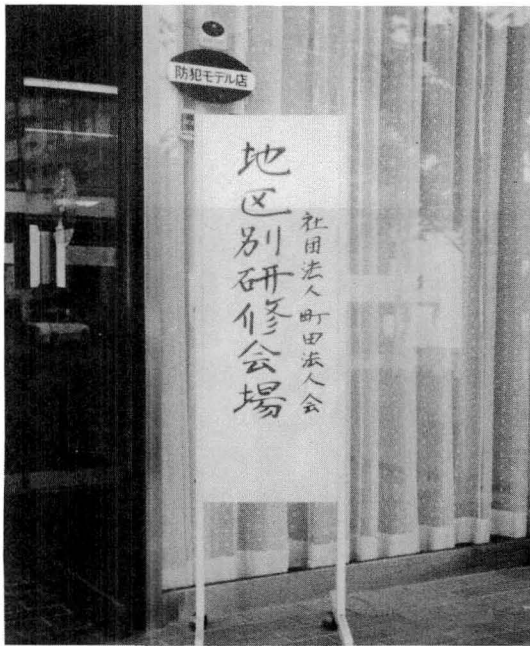 防犯モデル店
社団法人 町田法人会
地区別研修会場